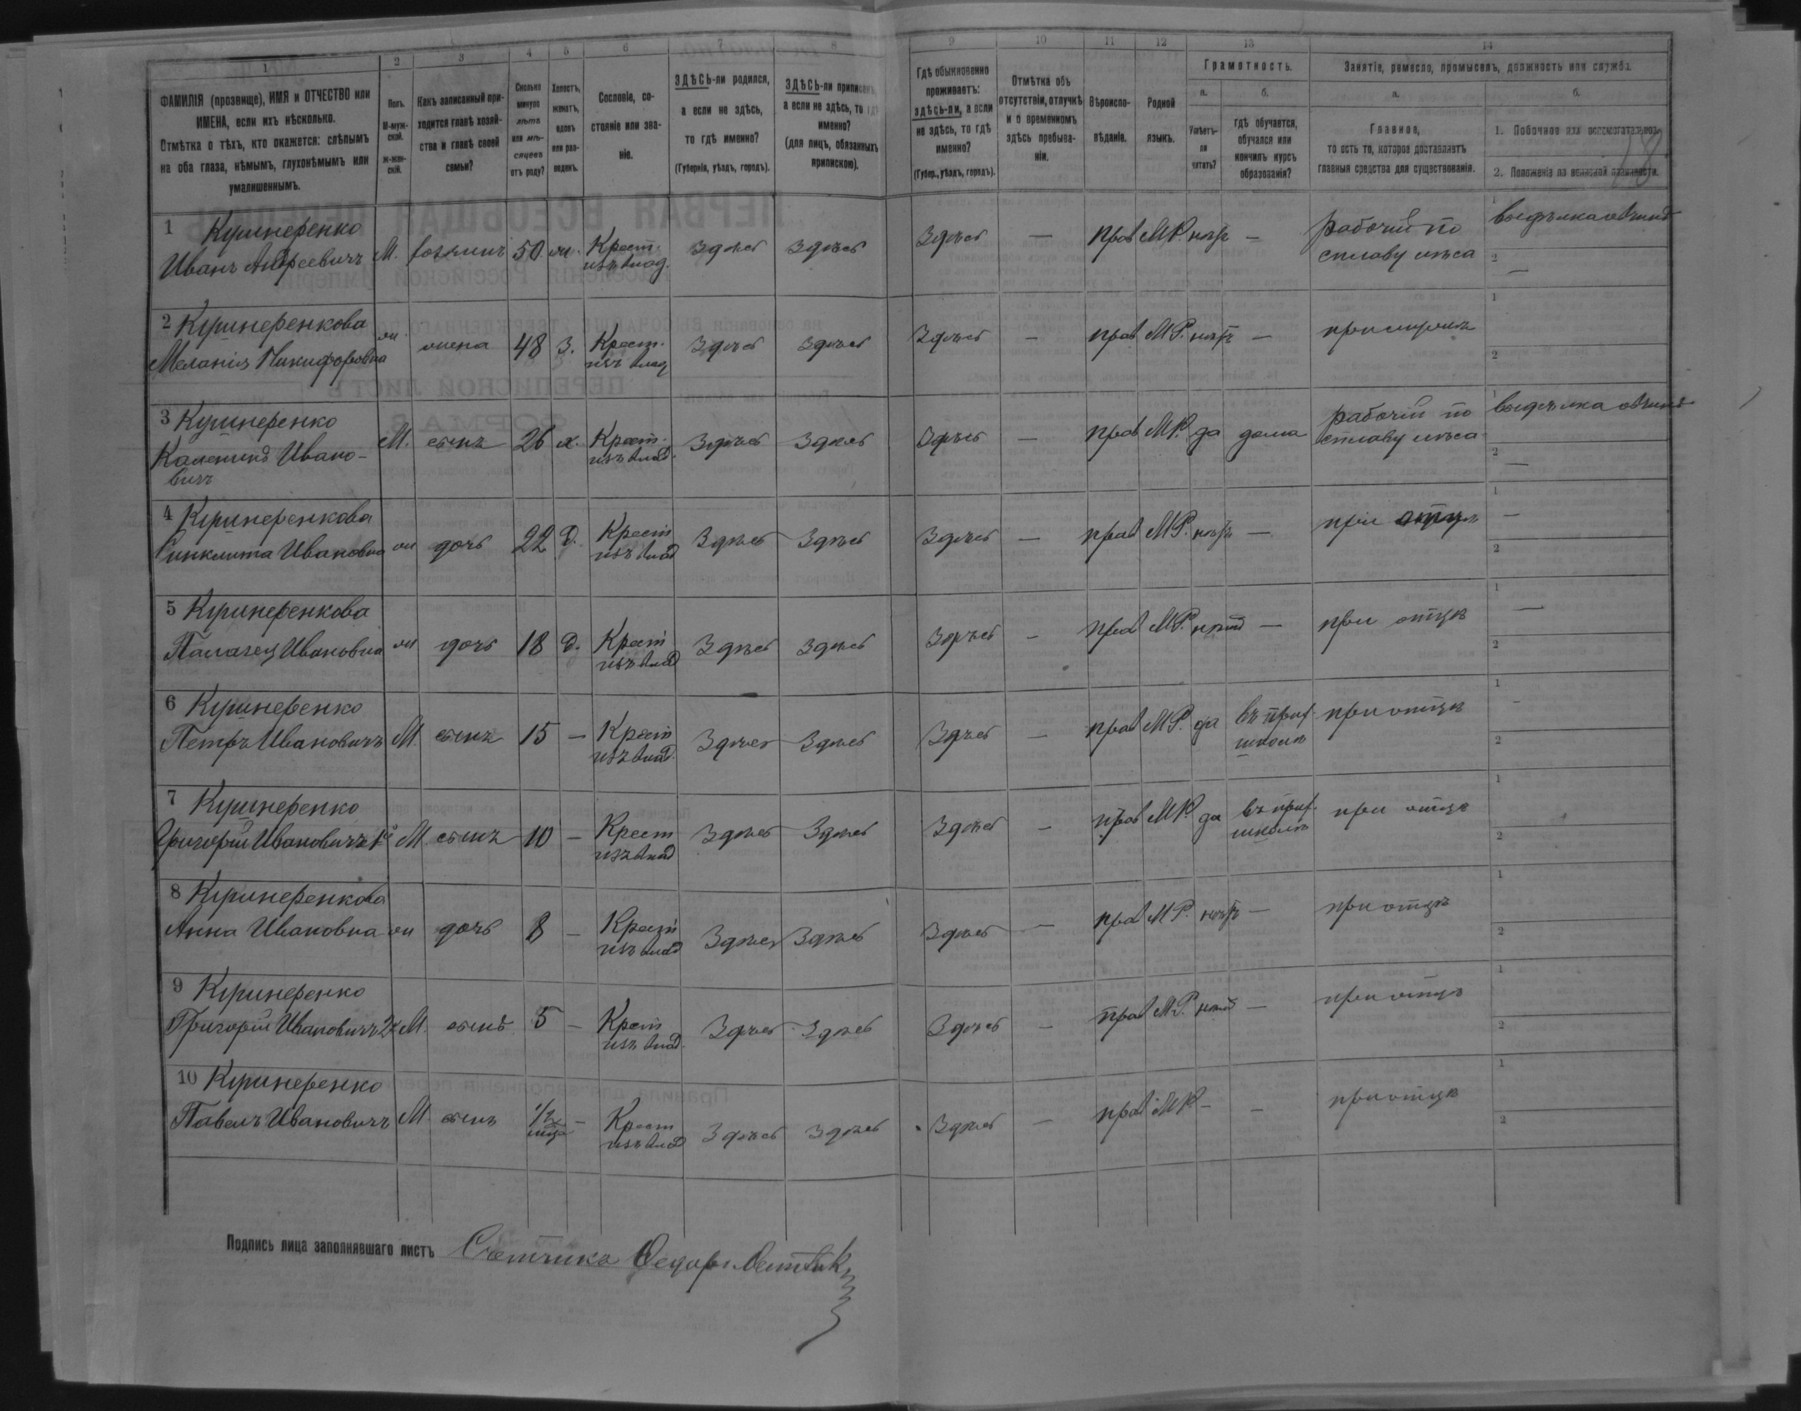 1 2 3 4 5 6 7 8 9 10 11 12 13 14
ФАМИЛІЯ (прозвище), ИМЯ и ОТЧЕСТВО или
ИМЕНА, если ихъ нѣсколько.
Отмѣтка о тѣхъ, кто окажется: слѣпымъ
на оба глаза, нѣмымъ, глухонѣмымъ или
умалишеннымъ.
Полъ.
М-муж-
ской.
ж-жен-
скій.
Какъ записанный при-
ходится главѣ хозяй-
ства и главѣ своей
семьи?
Сколько
минуло
лѣтъ
или мѣ-
сяцевъ
отъ роду?
Холостъ,
женатъ,
вдовъ
или раз-
веденъ.
Сословіе, со-
стояніе или зва-
ніе.
ЗДѢСЬ-ли родился,
а если не здѣсь,
то гдѣ именно?
(Губернія, уѣздъ, городъ).
ЗДѢСЬ-ли приписанъ,
а если не здѣсь, то гдѣ
именно?
(для лицъ, обязанныхъ
припискою).
Гдѣ обыкновенно
проживаетъ:
здѣсь-ли, а если
не здѣсь, то гдѣ
именно?
(Губер., уѣздъ, городъ).
Отмѣтка объ
отсутствіи, отлучкѣ
и о временномъ
здѣсь пребыва-
ніи.
Вѣроиспо-
вѣданіе.
Родной
языкъ.
Грамотность.
а.
Умѣетъ-
ли
читать?
б.
Гдѣ обучается,
обучался или
кончилъ курсъ
образованія?
Занятіе, ремесло, промыселъ, должность или служба.
а.
Главное,
то есть то, которое доставляетъ
главныя средства для существованія.
б.
1. Побочное или вспомогательное.
2. Положеніе по воинской повинности.
1 Кушнеренко
Иванъ Андреевичъ М. хозяинъ 50 ж. Крест. изъ влад. Здѣсь Здѣсь Здѣсь — прав М.Р. нѣтъ — рабочій по
сплаву лѣса
2 —
2 Кушнеренкова
Меланія Никифоровна ж жена 48 З. Крест. изъ влад Здѣсь Здѣсь Здѣсь — прав М.Р. нѣтъ —
3 Кушнеренко
Ивано-
вичъ
М. сынъ 26 х. Крест. изъ влад. Здѣсь Здѣсь Здѣсь — прав М.Р. да дома рабочій по
сплаву лѣса
2 —
4 Кушнеренкова
Ивановна ж дочь 22 д. Крест изъ влад Здѣсь Здѣсь Здѣсь — прав М.Р. нѣтъ — при отцѣ 1 —
2
5 Кушнеренкова
Ивановна ж дочь 18 д. Крест изъ влад Здѣсь Здѣсь Здѣсь — прав М.Р. нѣтъ — при отцѣ 1 —
2
6 Кушнеренко
Петръ Ивановичъ М. сынъ 15 — Крест изъ влад. Здѣсь Здѣсь Здѣсь — прав М.Р. да школѣ при отцѣ 1 -
2
7 Кушнеренко
Григорій Ивановичъ 1й М сынъ 10 — Крест изъ влад Здѣсь Здѣсь Здѣсь — прав М.Р. да школѣ при отцѣ 1
2
8 Кушнеренкова
Анна Ивановна ж дочь 8 — Крест изъ влад Здѣсь Здѣсь Здѣсь — прав М.Р. нѣтъ — при отцѣ 1
2
9 Кушнеренко
Григорій Ивановичъ 2й М. сынъ 5 — Крест изъ влад. Здѣсь Здѣсь Здѣсь — прав М.Р. нѣтъ — при отцѣ 1
2
10 Кушнеренко
Павелъ Ивановичъ М сынъ 1/2 — Крест изъ влад Здѣсь Здѣсь Здѣсь — прав М.Р. — — при отцѣ 1
2
Подпись лица заполнявшаго листъ Счетчикъ